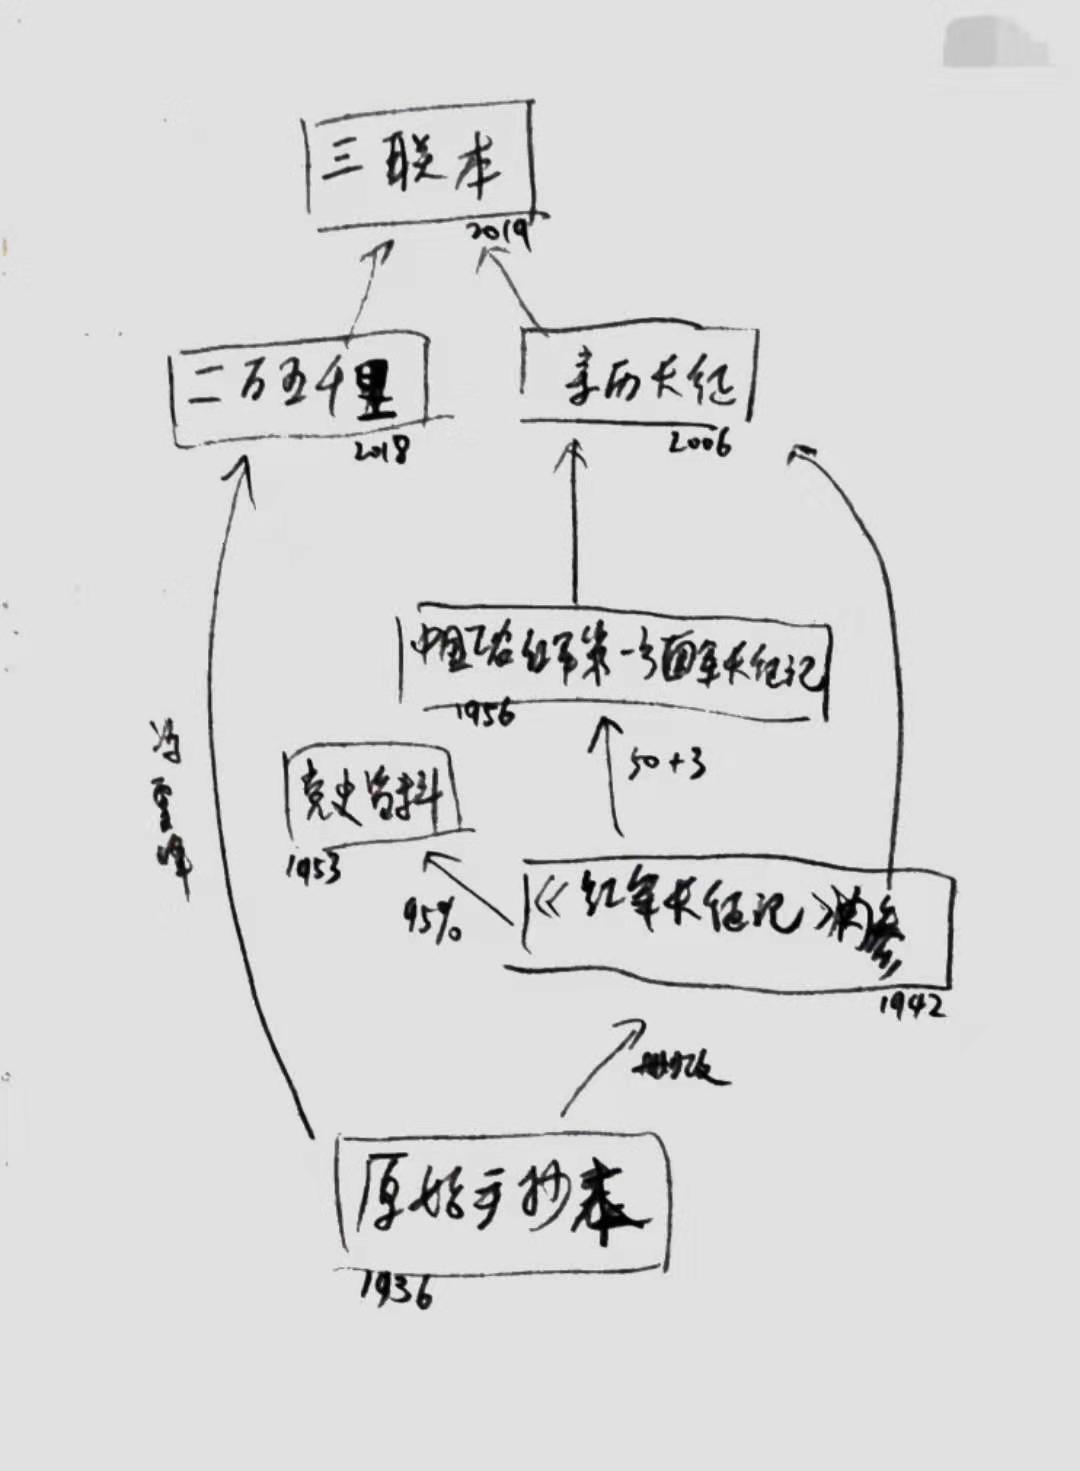 三联本
2019
二万五千里
2018
亲历长征
2006
中国工农红军第一方面军长征记
1956
冯雪峰
50+3
党史资料
1953
95%
《红军长征记》内参
1942
删改
原始手抄本
1936